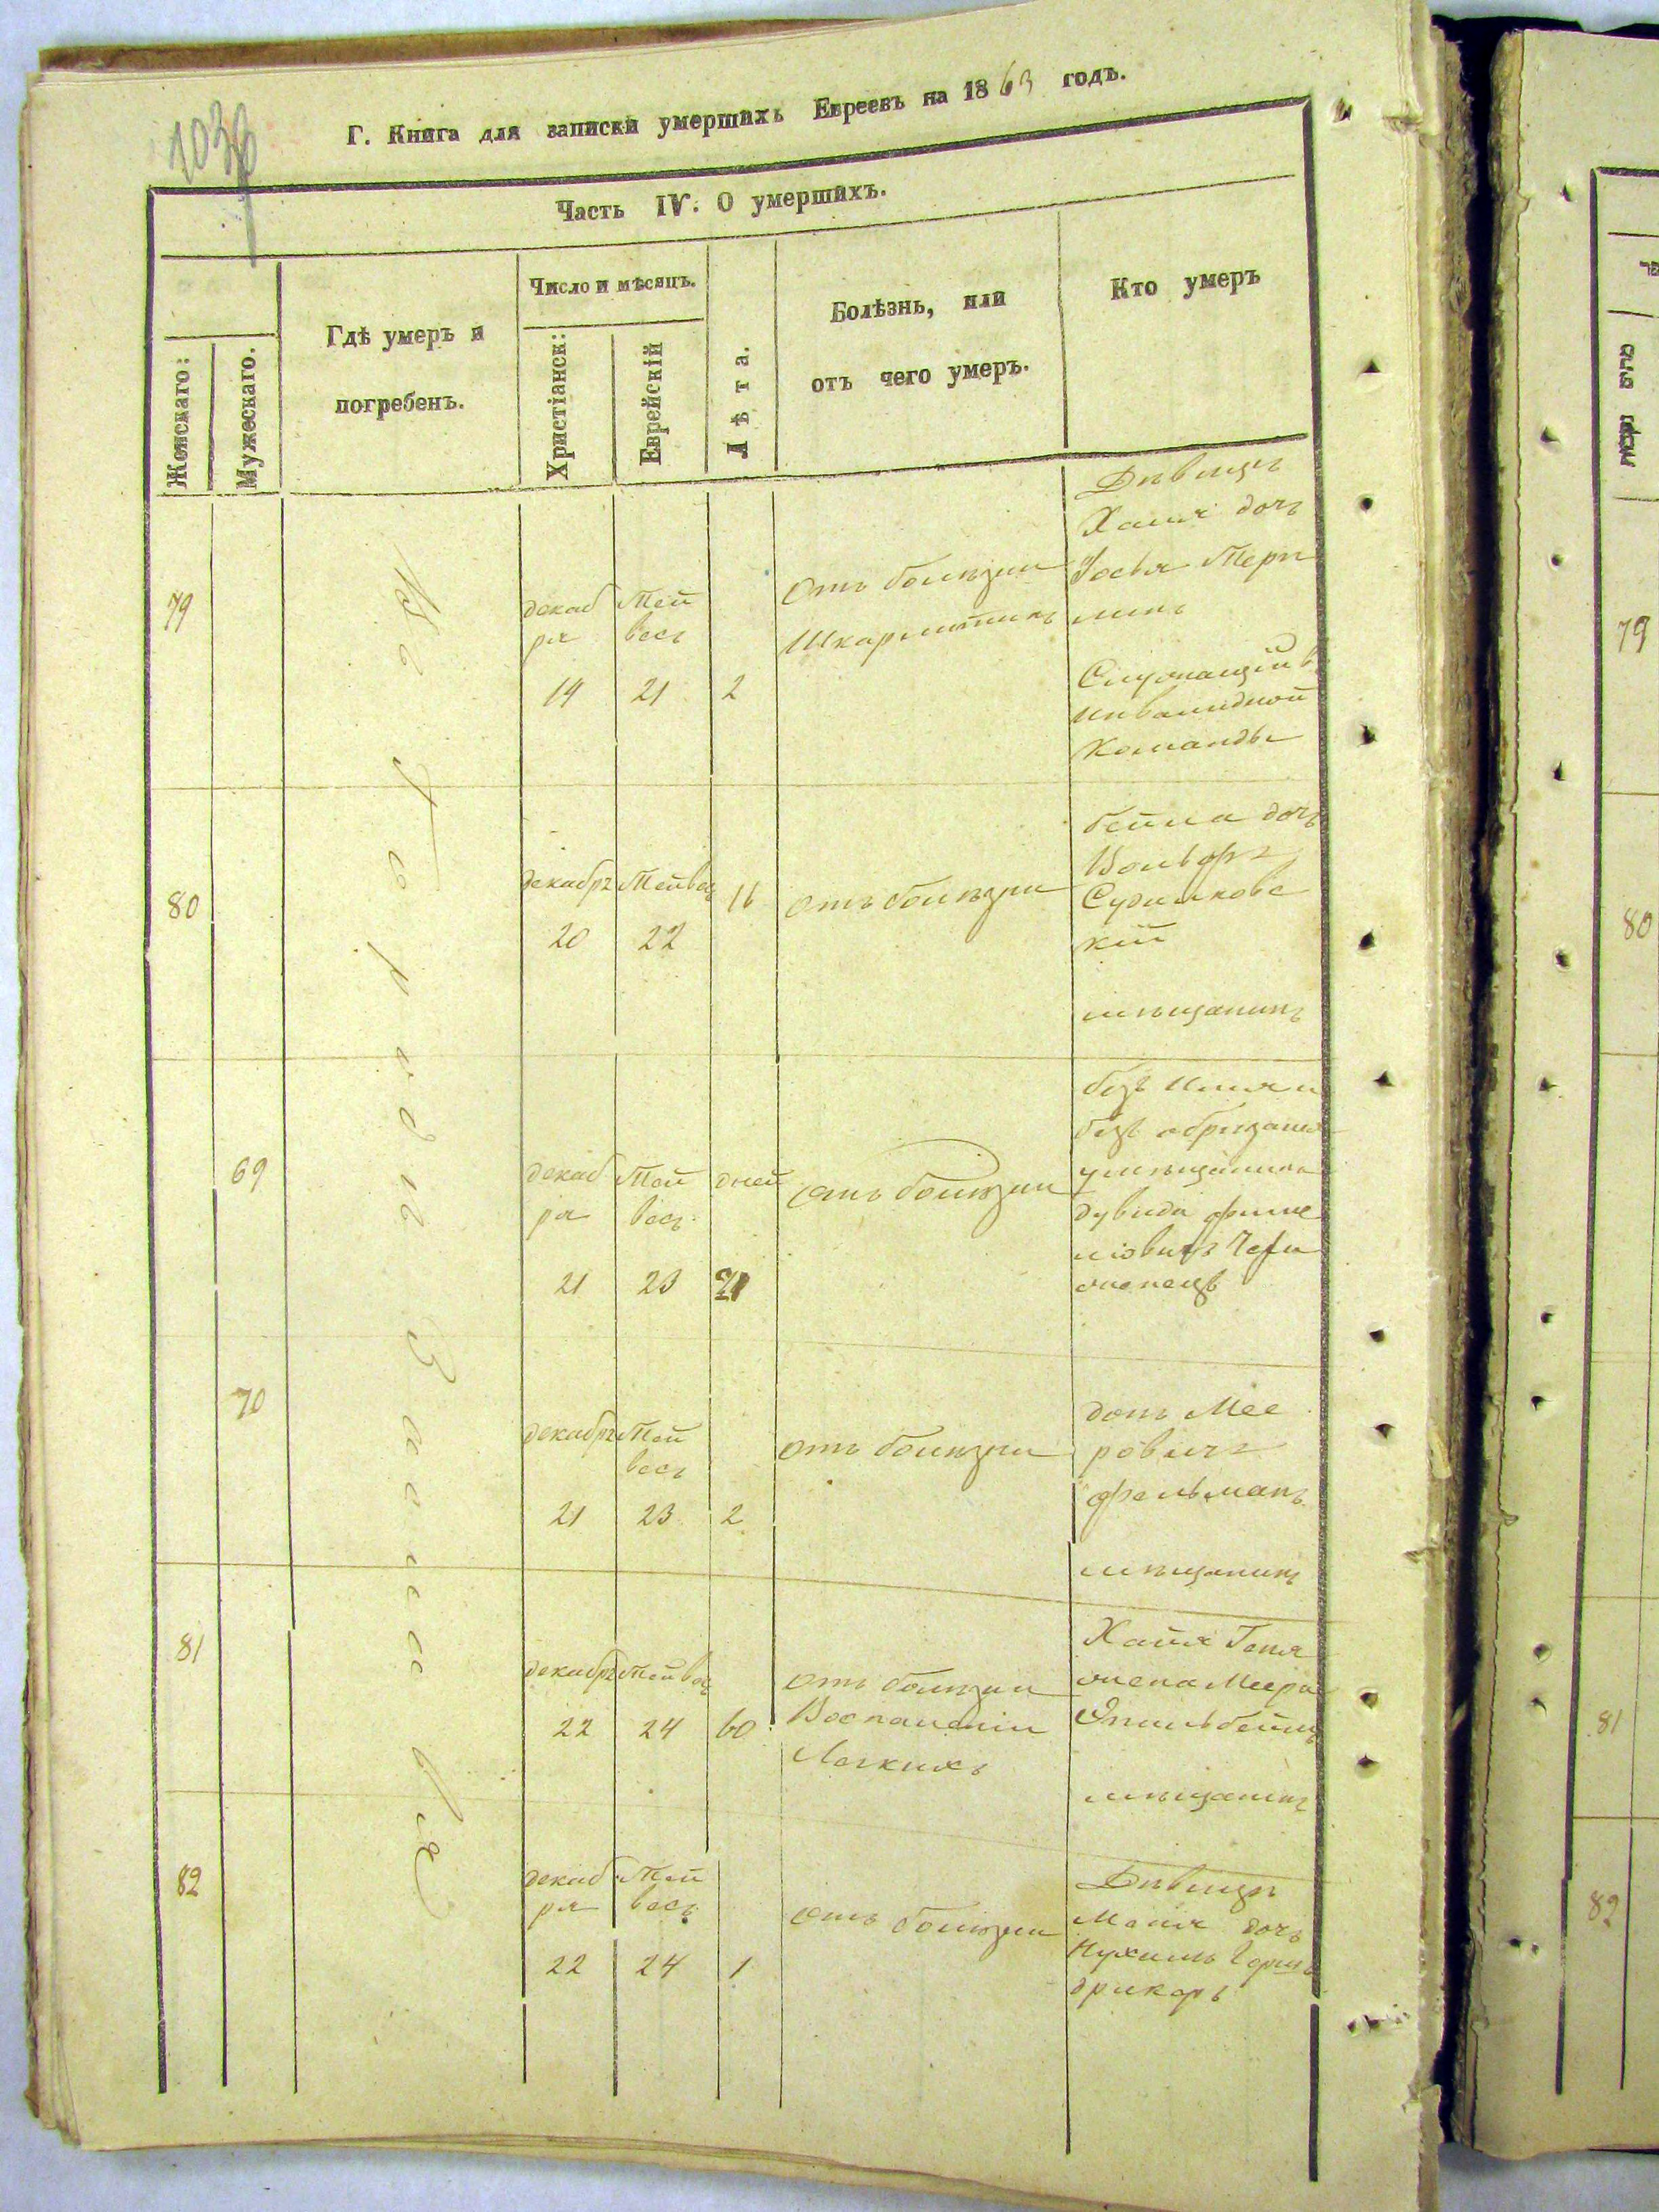 1036
Г. Книга для записки умершихъ Евреевъ на 1863 годъ.
Часть IV. О умершихъ.
Женскаго:
Мужескаго.
Гдѣ умеръ и
погребенъ.
Число и мѣсяцъ.
Христіанск:
Еврейскій
Лѣта.
Болѣзнь, или
отъ чего умеръ.
Кто умеръ
Въ Городѣ Василькове
79
декаб
ря
14
Тей
весъ
21
2
Отъ болѣзни
Шкарлатинъ
Дѣвица
Ханя дочъ
Іосья
линъ
Служащій в
инвалидной
Команды
80
декабръ
20
Тейвес
22
16
отъ болѣзни
бейла дочъ
Вольфъ
Судилковс
кій
мѣщанинъ
69
декаб
ря
21
Тей
весъ
23
дней
21
отъ болѣзни
безъ имя и
безъ обрезания
умѣщанина
дувида фише
лювичъ
70
декабръ
21
Тей
весъ
23
2
отъ болѣзни
Мее
ровичъ
фельманъ
мѣщанинъ
81
декабръ
22
Тейвес
24
60
отъ болѣзни
Воспаленіи
Легкихъ
Хайя Геня
жена Меера
мѣщанинъ
82
декаб
ря
22
Тей
весъ
24
1
отъ болѣзни
Дѣвица
Маня дочъ
Нухимъ Горшъ
дрикеръ
79
80
81
82